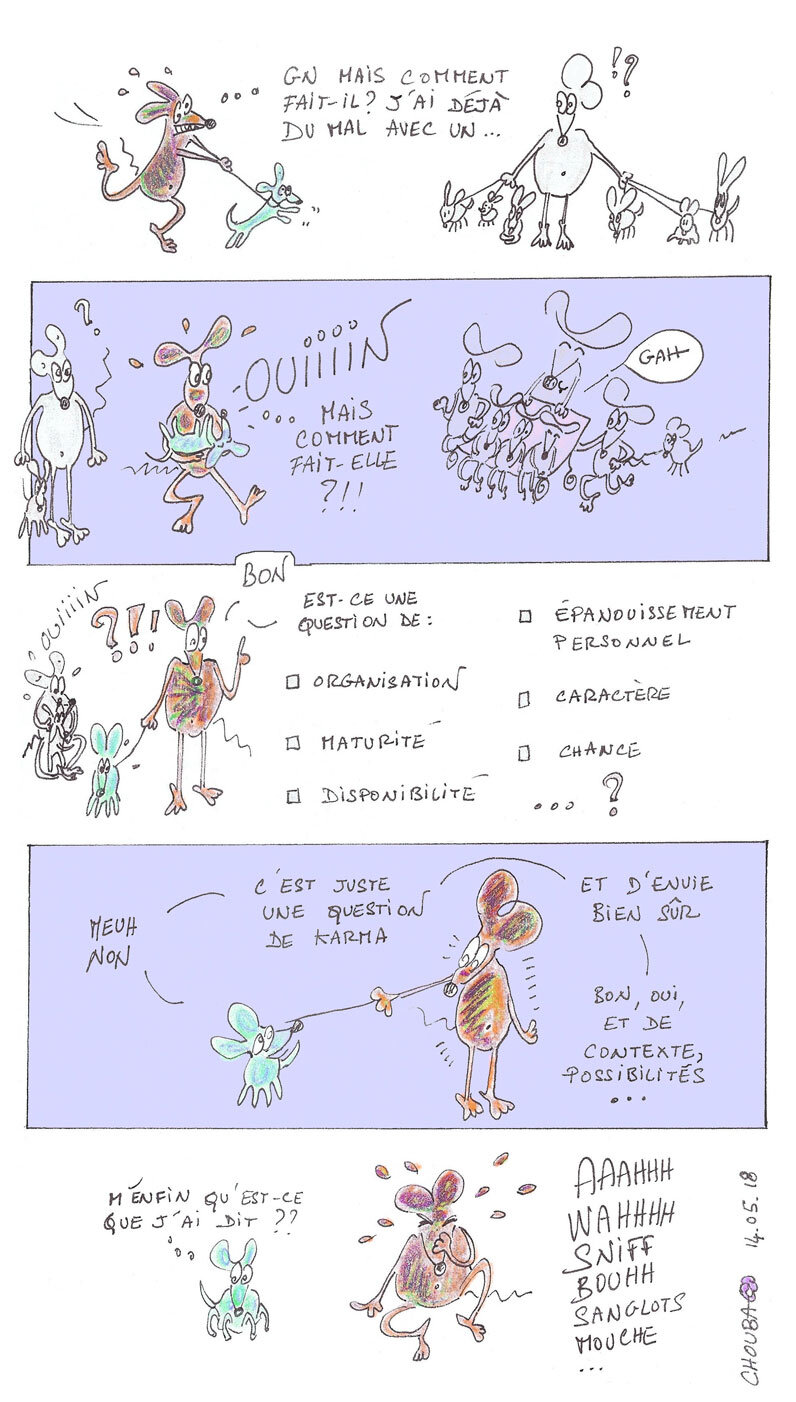 GN MAIS COMMENT
FAIT-IL? J'AI DÉJÀ
DU MAL AVEC UN...
!?
?
OUIIIIN
... MAIS
COMMENT
FAIT-ELLE
?!!
GAH
BON
OUIIIIN
?!!
EST-CE UNE
QUESTION DE:
ORGANISATION
MATURITÉ
DISPONIBILITÉ
ÉPANOUISSEMENT
PERSONNEL
CARACTÈRE
CHANCE
... ?
MEUH
NON
C'EST JUSTE
UNE QUESTION
DE KARMA
ET D'ENVIE
BIEN SÛR
BON, OUI,
ET DE
CONTEXTE,
POSSIBILITÉS
...
M'ENFIN QU'EST-CE
QUE J'AI DIT ??
AAAHHH
WAHHHH
SNIFF
BOUHH
SANGLOTS
MOUCHE
...
CHOUBA 14.05.18